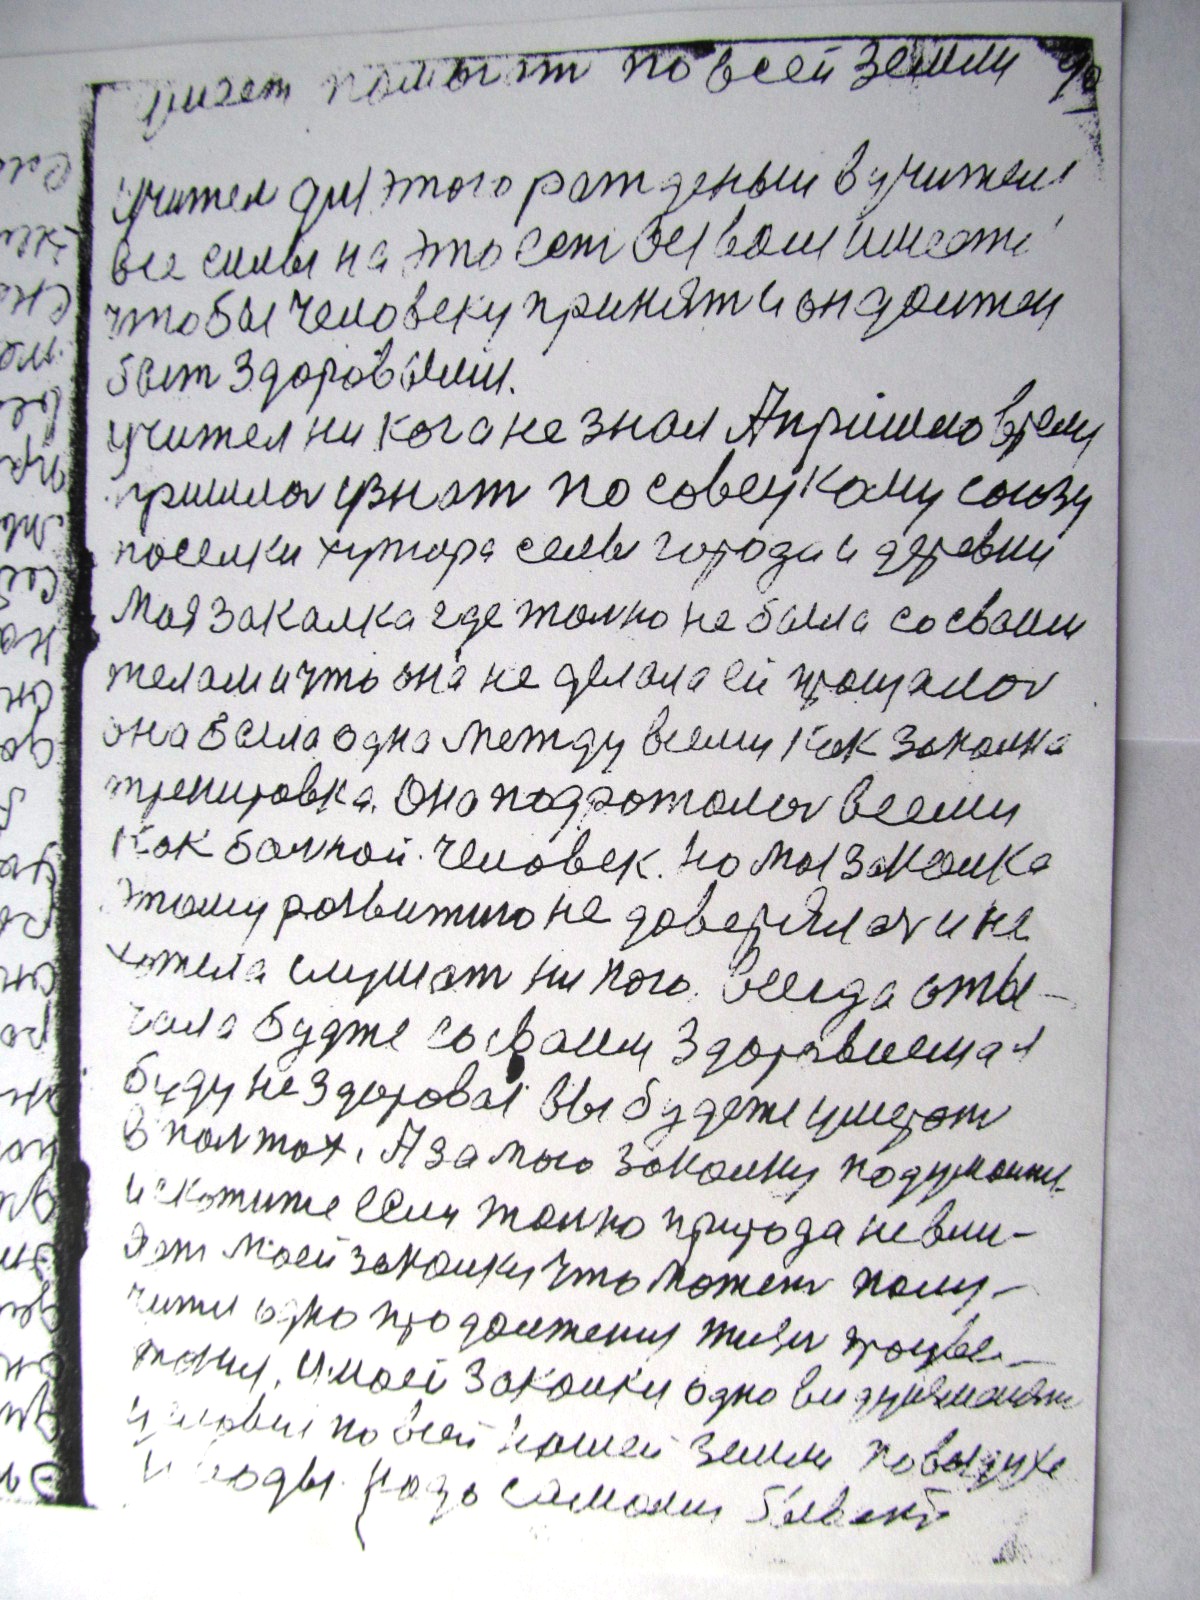 по всей земли
учител для этого ражденыи в учителя
все силы на это ест вся воля имеэти
чтобы человеку принят и он должен
быт здоровыми.
учител никога не знал А пришло время
пришлос узнат по совецкому союзу
поселки хутора селы города и деревни
Моя закалка где толко не была со сваим
телам и что она не делала ей прощалос
она была одна между всеми как закалка
тренировка. Она подзоталас всеми
как балной человек. но моя закалка
этому розвитию не доверялас и не
хотела слушат никого. всегда отвы-
чала будте со сваим здоровием а я
буду не здоровая вы будете умерат
в полтох. А за мою закалку подумайти
искажите если толко природа невли-
яэт моей закалки что можеть полу-
чити одно продолжения жизни процве-
тания. У моей закалки одно видуумынят
условия по всей нашей земли по воздухе
и воды. надо самому